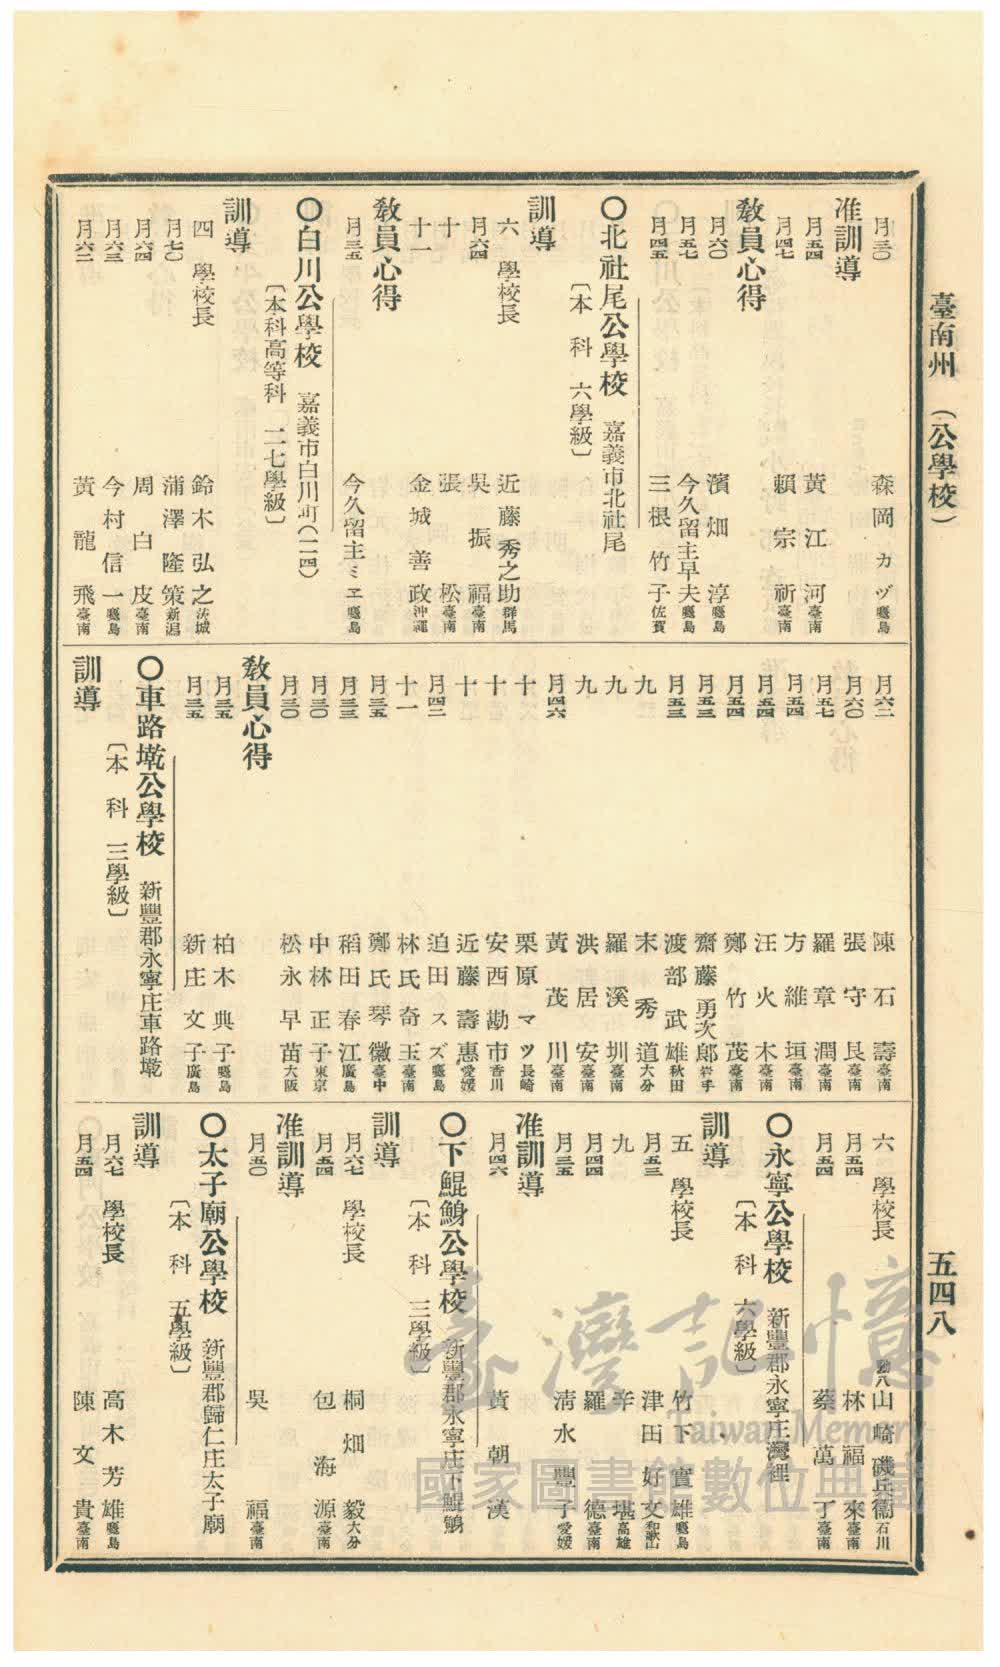 臺南州 (公學校)
五四八
月三〇 森岡カヅ 鹿兒島
准訓導
月五四 黃江河 臺南
月四七 賴宗祈 臺南
教員心得
月六〇 濱畑淳 鹿兒島
月五七 今久留主早夫 鹿兒島
月四五 三根竹子 佐賀
〇北社尾公學校 嘉義市北社尾
〔本科 六學級〕
訓導
六 學校長 近藤秀之助 群馬
月六四 吳振福 臺南
十 張松 臺南
十一 金城善政 沖繩
教員心得
月三五 今久留主ミヱ 鹿兒島
〇白川公學校 嘉義市白川町(二四)
〔本科高等科 二七學級〕
訓導
四 學校長 鈴木弘之 茨城
月七〇 蒲澤隆策 新潟
月六四 周白皮 臺南
月六三 今村信一 鹿兒島
月六二 黃龍飛 臺南
月六二 陳石壽 臺南
月六〇 張守艮 臺南
月五七 羅章潤 臺南
月五四 方維垣 臺南
月五四 汪火木 臺南
月五四 鄭竹茂 臺南
月五三 齋藤勇次郎 岩手
月五三 渡部武雄 秋田
九 末秀道 大分
九 羅溪圳 臺南
九 洪居安 臺南
月四六 黃茂川 臺南
十 栗原ニマツ 長崎
十 安西勘市 香川
十 近藤壽惠 愛媛
月四二 迫田カスズ 鹿兒島
十一 林氏奇玉 臺南
月三五 鄭氏琴徽 臺中
月三三 稻田春江 廣島
月三〇 中林正子 東京
月三〇 松永早苗 大阪
教員心得
月三五 柏木典子 鹿兒島
月三五 新庄文子 廣島
〇車路墘公學校 新豐郡永寧庄車路墘
〔本科 三學級〕
訓導
六 學校長 勳八 山崎磯兵衞 石川
月五四 林福來 臺南
月五四 蔡萬丁 臺南
〇永寧公學校 新豐郡永寧庄灣裡
〔本科 六學級〕
訓導
五 學校長 竹下實雄 鹿兒島
月五三 津田好文 和歌山
九 辛堪 高雄
月四四 羅德 臺南
月三五 淸水豐子 愛媛
准訓導
月四六 黃朝漢
〇下鯤鯓公學校 新豐郡永寧庄下鯤鯓
〔本科 三學級〕
訓導
月六七 學校長 桐畑毅 大分
月五四 包海源 臺南
准訓導
月五〇 吳三福 臺南
〇太子廟公學校 新豐郡歸仁庄太子廟
〔本科 五學級〕
訓導
月六七 學校長 高木芳雄 鹿兒島
月五四 陳文貴 臺南
臺灣記憶
Taiwan Memory
國家圖書館數位典藏